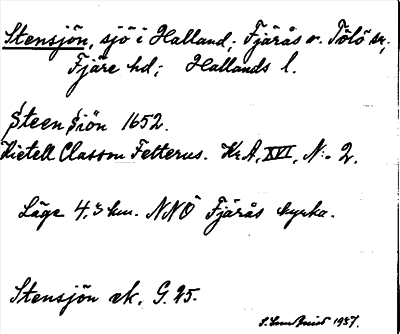 Stensjön, sjö i Halland; Fjärås o. Tölö sr,
Fjäre hd; Hallands l.
Steen Siön 1652.
Kietell Classon Fetterus. KrA, XVI, N:o 2.
Läge 4,3 km. NNÖ Fjärås kyrka.
Stensjön ek. G. 25.
1937.